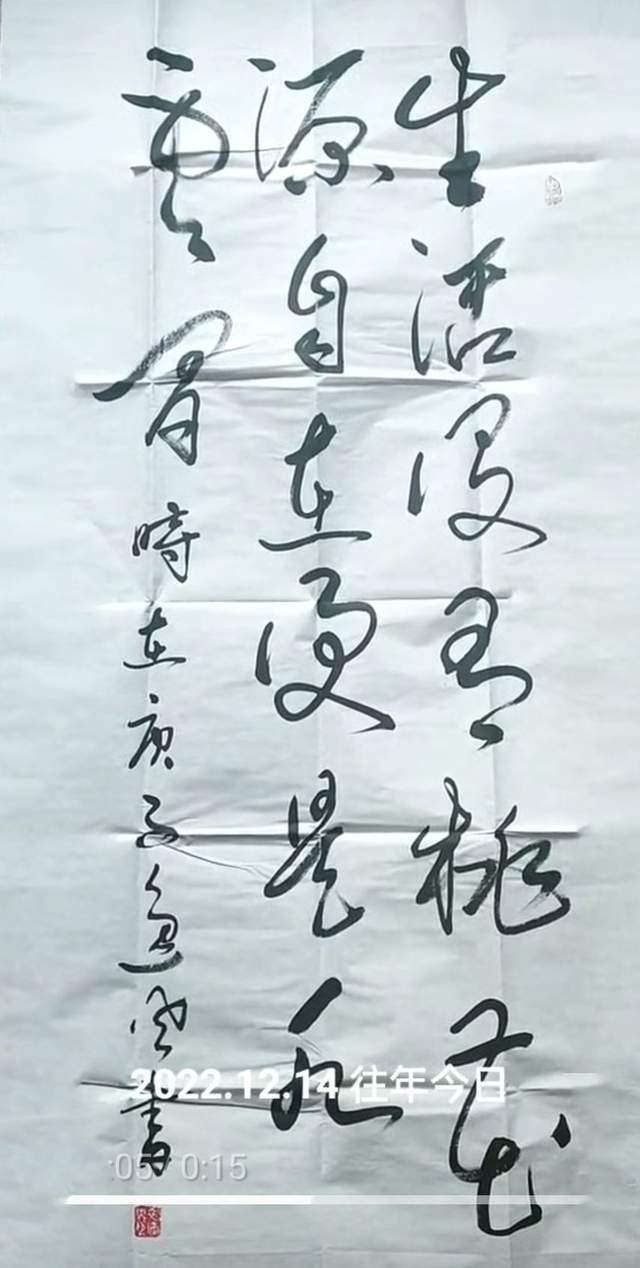 生活没有桃花
源自在便是水
云間時在庚子逸风書
2022.12.14 往年今日
:05 / 0:15